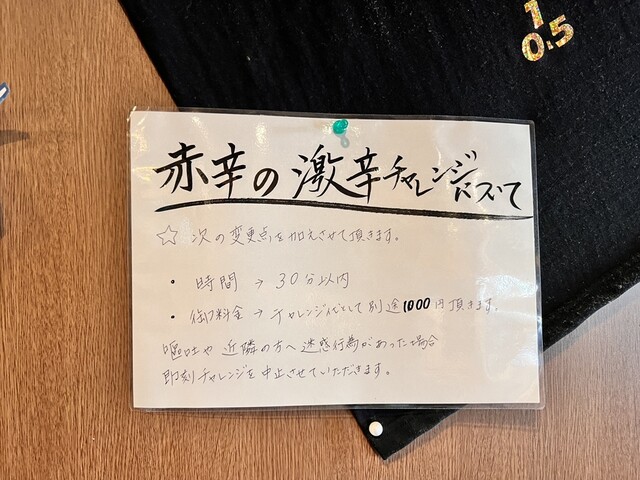 1
0.5
赤辛の激辛チャレンジについて
☆ 次の変更点を加えさせて頂きます。
・時間 → 30分以内
・御料金 → チャレンジ代として別途1000円頂きます。
嘔吐や近隣の方へ迷惑行為があった場合
即刻チャレンジを中止させていただきます。